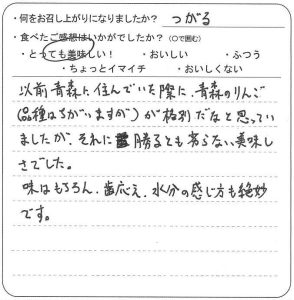 ・何をお召し上がりになりましたか？ つがる
・食べたご感想はいかがでしたか？（○で囲む）
・とっても美味しい！ ・おいしい ・ふつう
・ちょっとイマイチ ・おいしくない
以前青森に住んでいた際に、青森のりんご
(品種はちがいますが)が格別だなと思ってい
ましたが、それに勝るとも劣らない美味し
さでした。
味はもちろん、歯応え、水分の感じ方も絶妙
です。